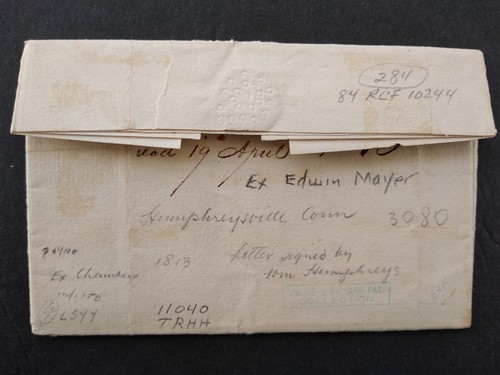 284
84 RCF 10244
19 April
Ex Edwin Mayer
Humphreysville Conn 3080
Letter signed by
1813
Wm Humphreys
Ex Chambers
LSYY
11040
TRHH